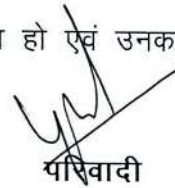 हो एवं उनक
परिवादी